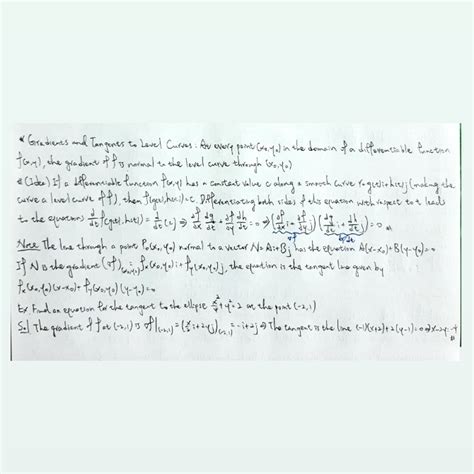 * Gradients and Tangents to Level Curves: At every point (x₀,y₀) in the domain of a differentiable function
f(x,y), the gradient of f is normal to the level curve through (x₀,y₀)
*(Idea) If a differentiable function f(x,y) has a constant value c along a smooth curve r=g(t)i+h(t)j (making the
curve a level curve of f), then f(g(t),h(t))=c. Differentiating both sides of this equation with respect to t leads
to the equations d/dt f(g(t),h(t))=d/dt(c) ⇒ ∂f/∂x dg/dt + ∂f/∂y dh/dt=0 ⇒ (∂f/∂x i+∂f/∂y j)·(dg/dt i+dh/dt j)=0
∇f dr/dt
Note The line through a point P₀(x₀,y₀) normal to a vector N=Ai+Bj has the equation A(x-x₀)+B(y-y₀)=0
If N is the gradient (∇f)(x₀,y₀)=fx(x₀,y₀)i+fy(x₀,y₀)j, the equation is the tangent line given by
fx(x₀,y₀)(x-x₀)+fy(x₀,y₀)(y-y₀)=0
Ex Find an equation for the tangent to the ellipse x²/4+y²=2 at the point (-2,1)
Sol The gradient of f at (-2,1) is ∇f|(-2,1)=(x/2 i+2yj)(-2,1)=-i+2j ⇒ The tangent is the line (-1)(x+2)+2(y-1)=0 ⇒ x-2y=-4